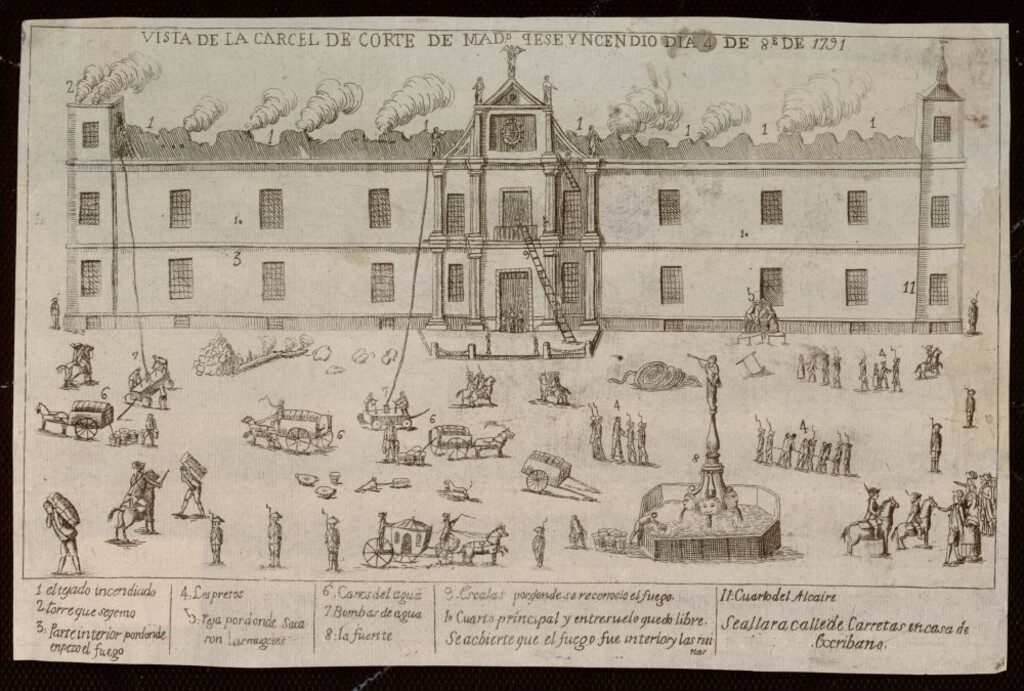 VISTA DE LA CARCEL DE CORTE DE MADº qESE YNCENDIO DIA 4 DE 8ᴱ DE 1791
2
1
1
1
1
1
1
1.
1.
3
9
11
5
7
7
6
6
6
4
4
4
8
1 el tejado incendiado
2 torre que se qemo
3. Parte interior por donde
enpezo el fuego
4. Los presos
5. Reja por donde Saca
ron las mugeres
6. Caros del agua
7. Bombas de agua
8. la fuente
9. Escalas por donde se reconocio el fuego.
10 Cuarto principal y entresuelo quedo libre.
Se achierte que el fuego fue interior y las rui
nas
11. Cuarto del Alcaire
Se allara calle de Carretas en casa de
Escribano.